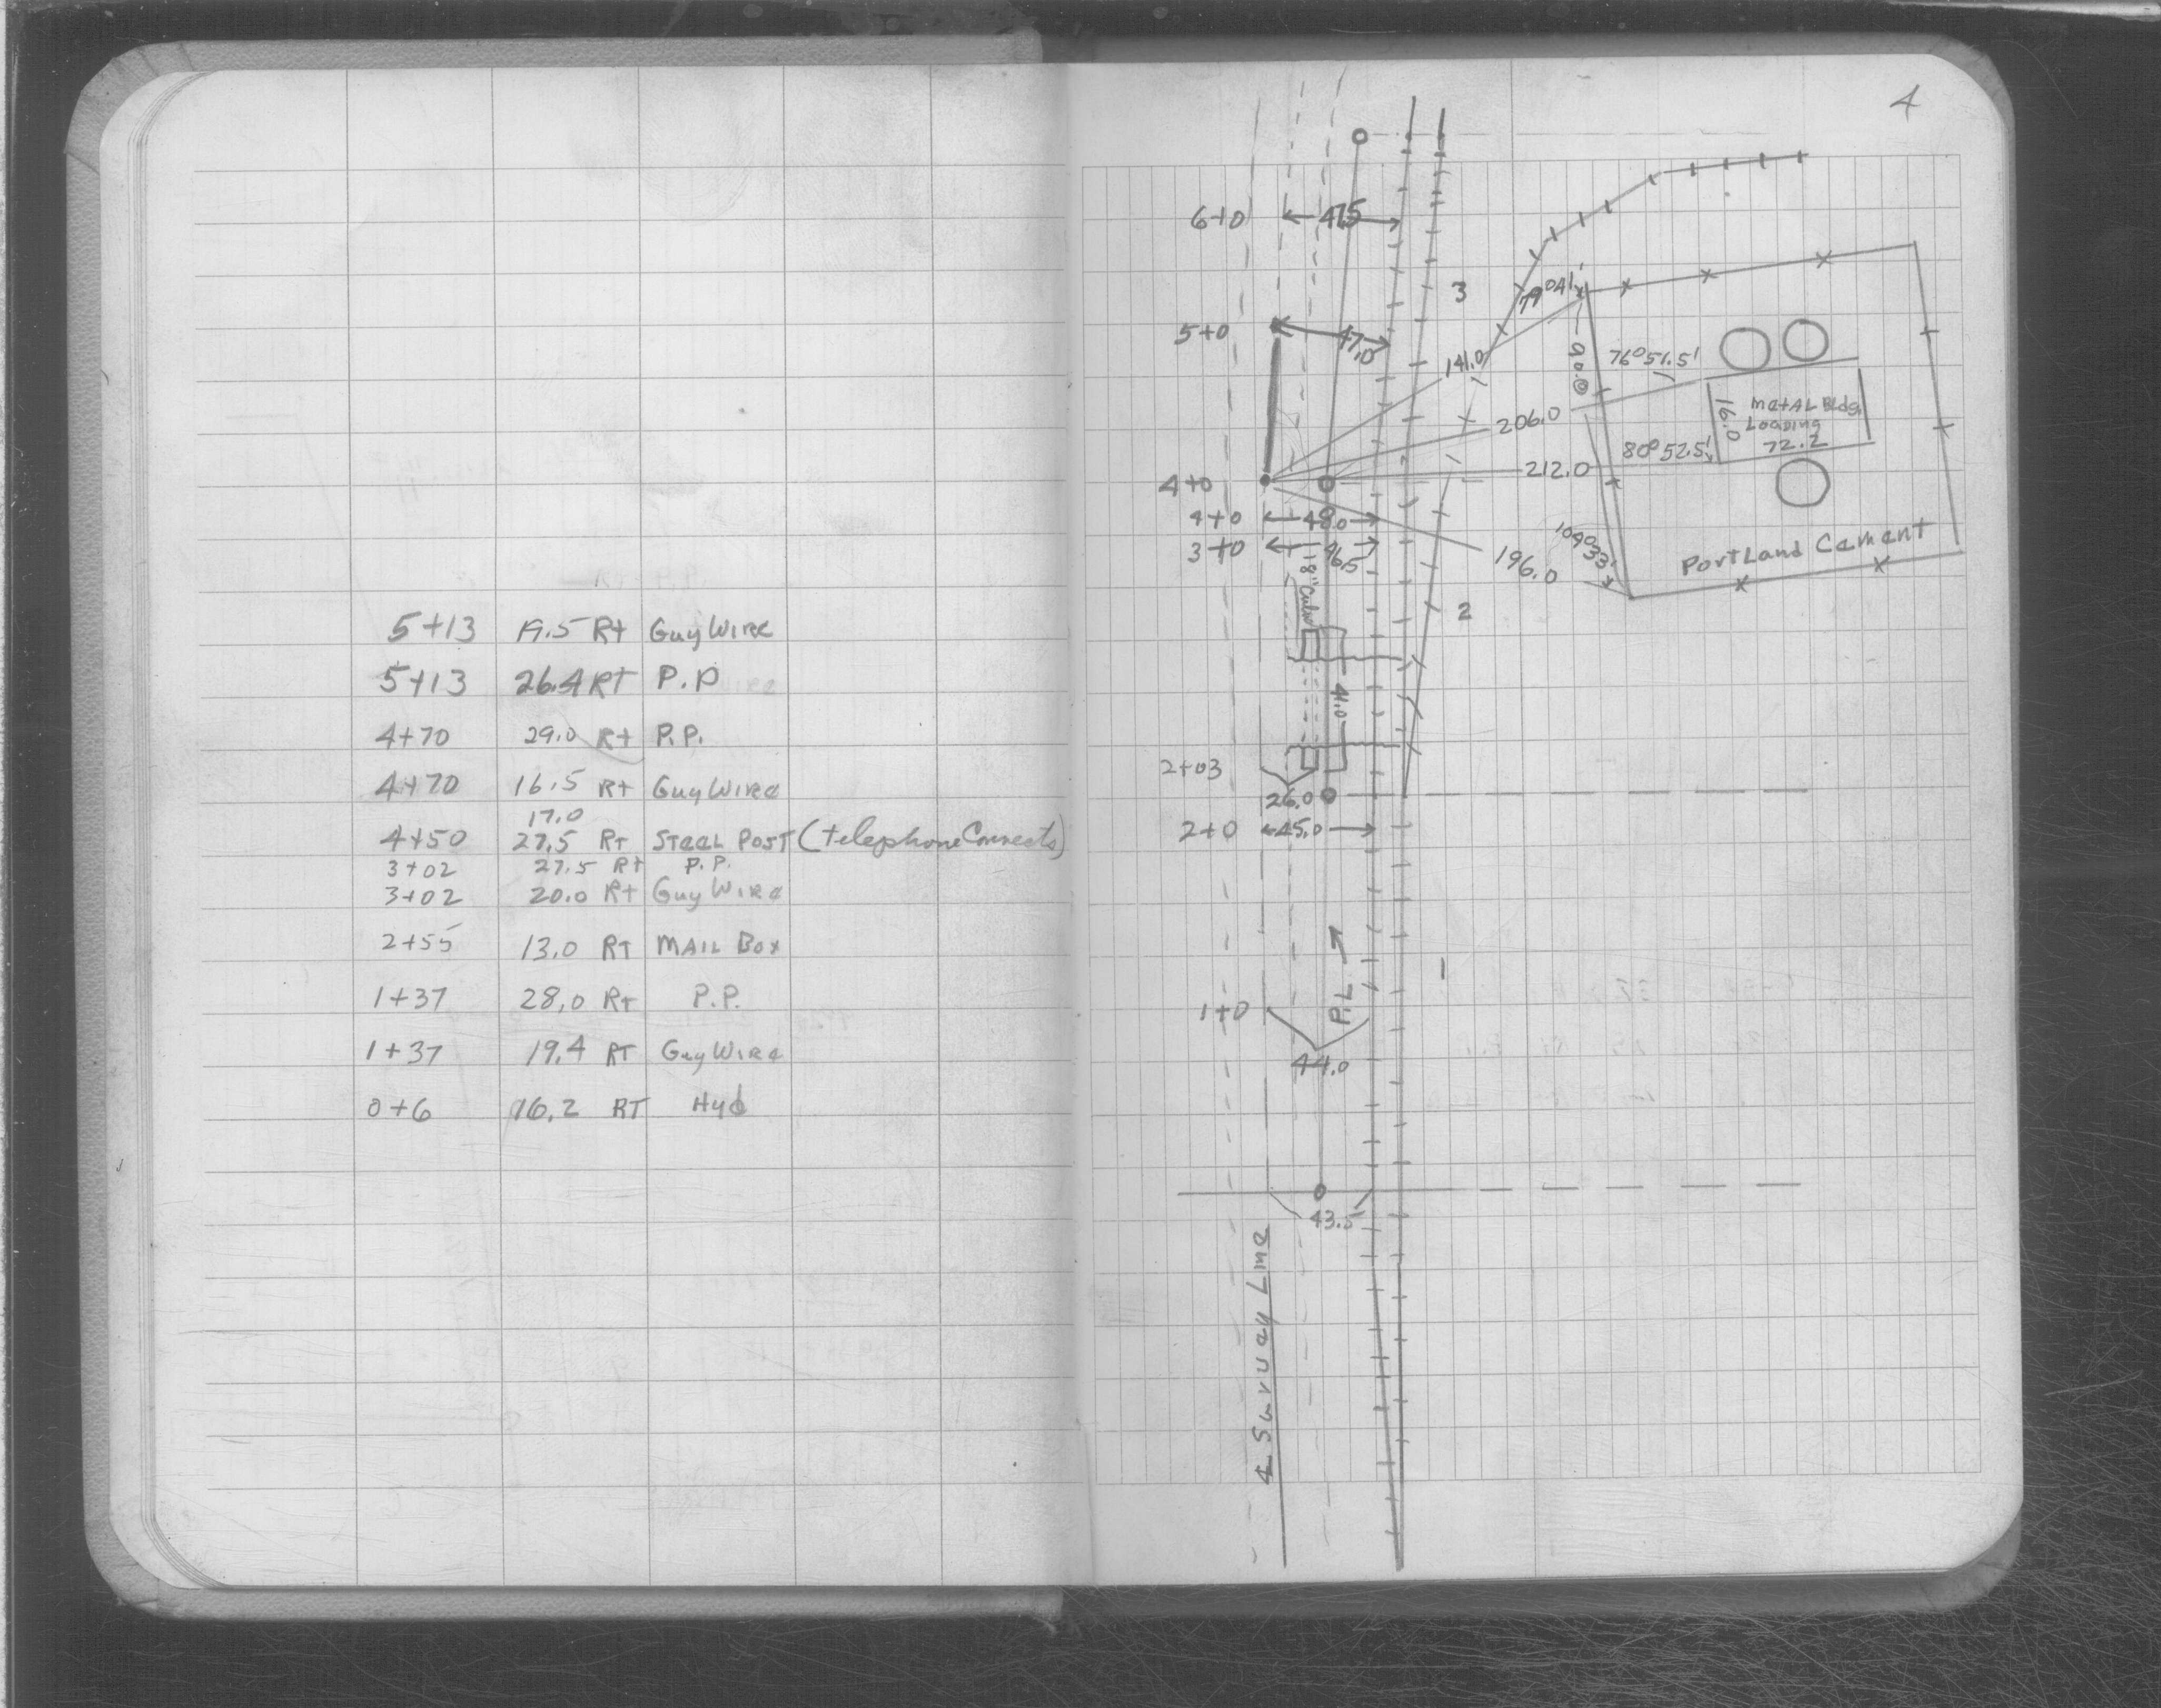 5+13 19.5 Rt Guy Wire
5+13 26.4 RT P.P
4+70 29.0 Rt P.P.
4+70 16.5 Rt Guy Wire
17.0
4+50 27.5 Rt Steel Post (telephone Connects)
3+02 27.5 Rt P.P.
3+02 20.0 Rt Guy Wire
2+55 13.0 RT MAIL Box
1+37 28.0 RT P.P.
1+37 19.4 RT Guy Wire
0+6 16.2 RT Hyd
4
6+0 47.5
3
79°41'
5+0 47.0
141.0
90.0
76°51.5'
Metal Bldg.
Loading
72.2
16.0
206.0
80°52.5'
212.0
4+0
4+0 48.0
3+0 46.5
196.0
104°33'
Portland Cement
18" Culv
2
41.0
2+03
26.0
2+0 45.0
P.L.
1
1+0
44.0
43.5
Survey Line